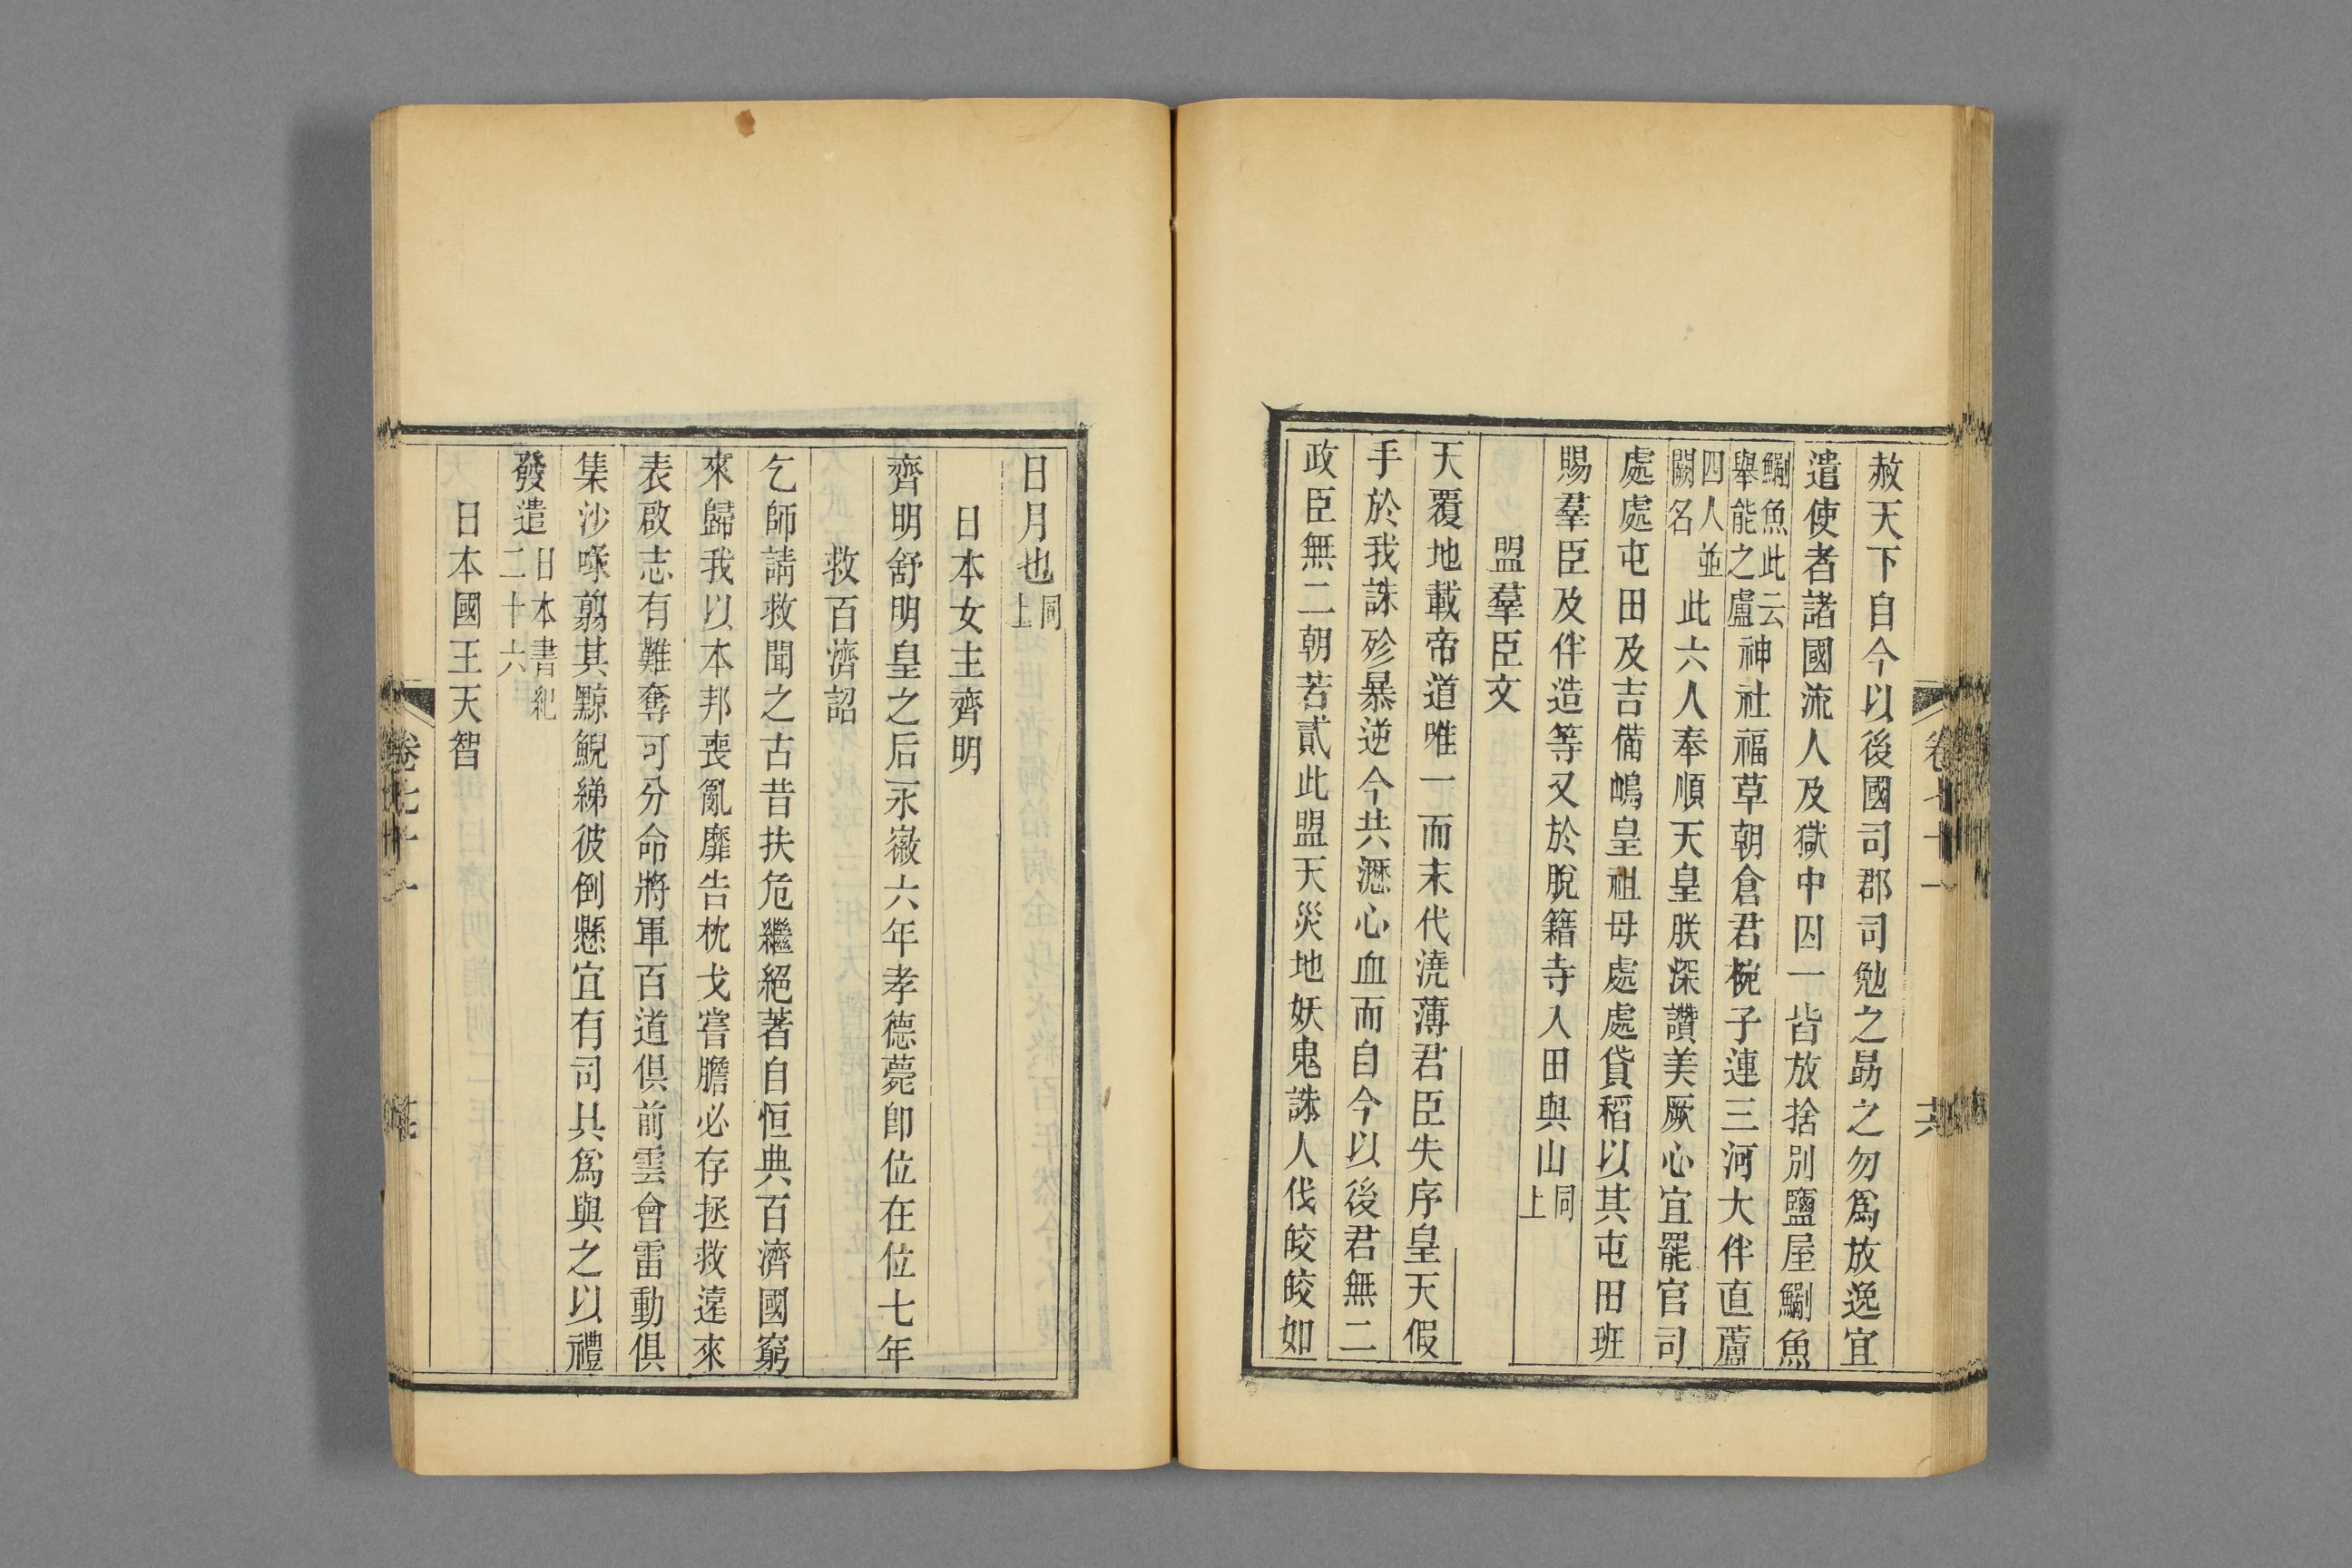 赦天下自今以後國司郡司勉之勗之勿爲放逸宜
遣使者諸國流人及獄中囚一皆放捨別鹽屋鯯魚
鯯魚此云
舉能之盧
神社福草朝倉君椀子連三河大伴直蘆
四人並
闕名
此六人奉順天皇朕深讚美厥心宜罷官司
處處屯田及吉備嶋皇祖母處處貸稻以其屯田班
賜羣臣及伴造等又於脫籍寺入田與山
同
上
盟羣臣文
天覆地載帝道唯一而末代澆薄君臣失序皇天假
手於我誅殄暴逆今共瀝心血而自今以後君無二
政臣無二朝若貳此盟天災地妖鬼誅人伐皎皎如
卷七十一
日月也
同
上
日本女主齊明
齊明舒明皇之后永徽六年孝德薨卽位在位七年
救百濟詔
乞師請救聞之古昔扶危繼絕著自恒典百濟國窮
來歸我以本邦喪亂靡告枕戈嘗膽必存拯救遠來
表啟志有難奪可分命將軍百道俱前雲會雷動俱
集沙㖨翦其黥鯢綈彼倒懸宜有司具爲與之以禮
發遣
日本書紀
二十六
日本國王天智
卷七十一